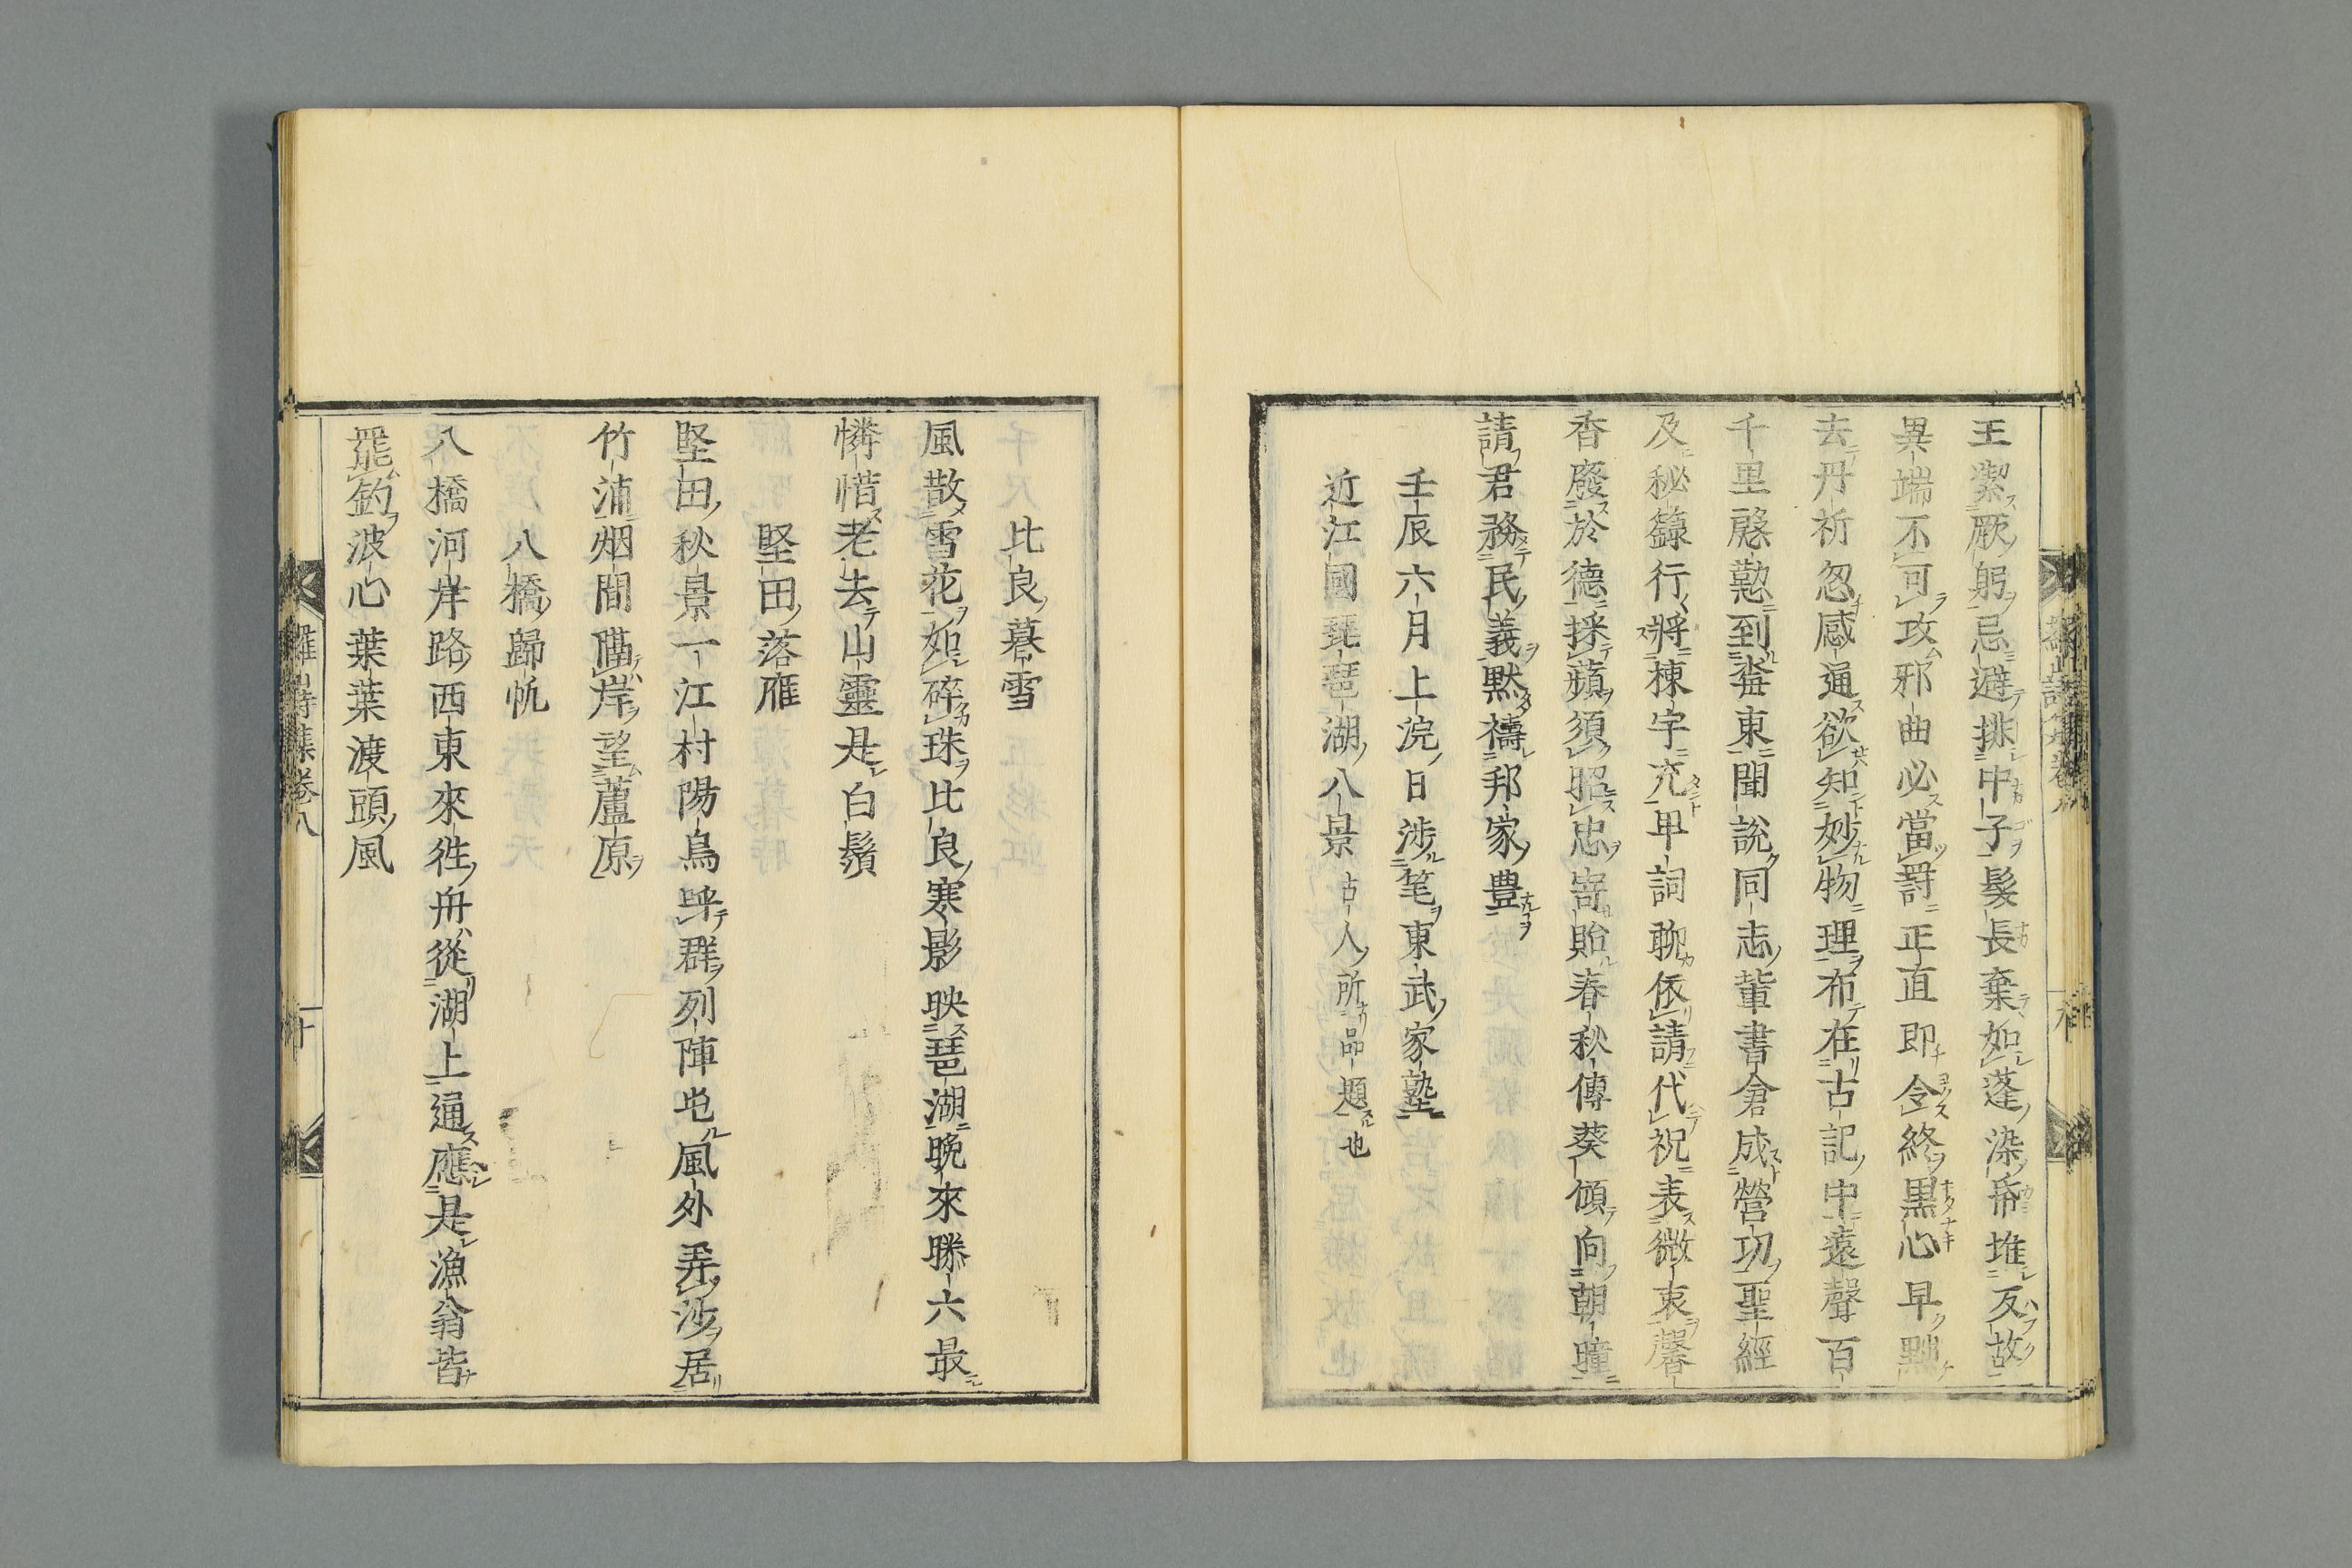 王潔厥躬忌避排中子髮長棄如蓬染希堆反故
異端不可攻邪曲必當罸正直即令終黒心早黜
去丹祈忽感通欲知妙物理布在古記中遠聲百
千里慇懃到海東聞說同志輩書倉成營功聖經
及秘籙行將棟宇充卑詞聊依請代祝表微衷馨
香廢於德採蘋須昭忠寄貽春秋傳葵傾向朝曈
請君務民義默禱邦家豊
壬辰六月上浣日渉筆東武家塾
近江國琵琶湖八景古人所品題也
比良暮雪
風散雪花如碎珠比良寒影映琶湖晩來勝六最
憐惜老去山靈是白鬚
堅田落雁
堅田秋景一江村陽鳥呼群列陣屯風外弄沙居
竹浦烟間臨岸望蘆原
八橋歸帆
八橋河岸路西東來徃舟從湖上通應是漁翁皆
罷釣波心葉葉渡頭風
羅山詩集卷八
十